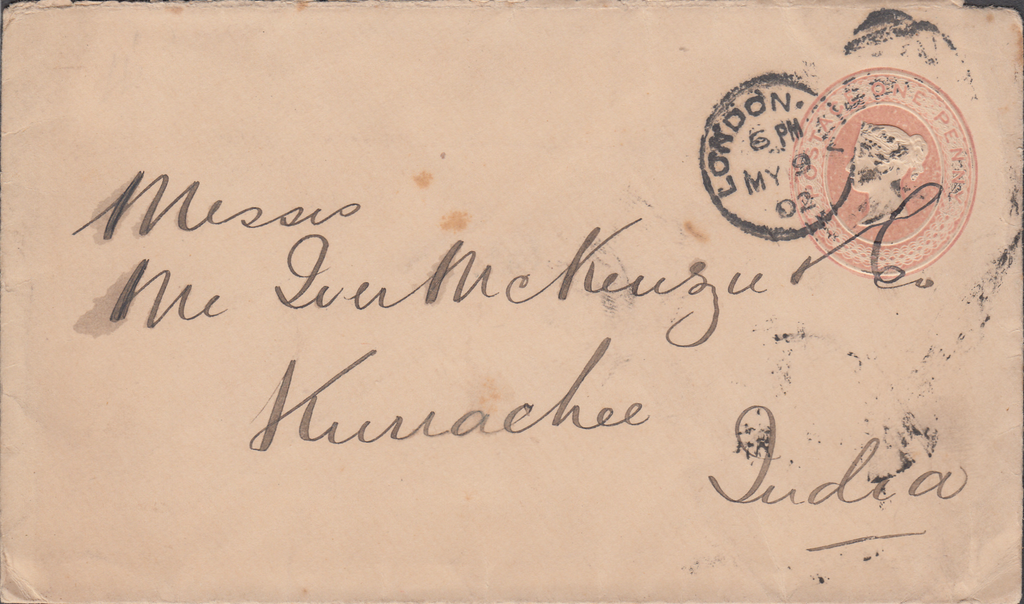 LONDON.
6 PM
MY 9
02
POSTAGE ONE PENNY
Messrs
Mc Iver McKenzie & Co
Kurrachee
India